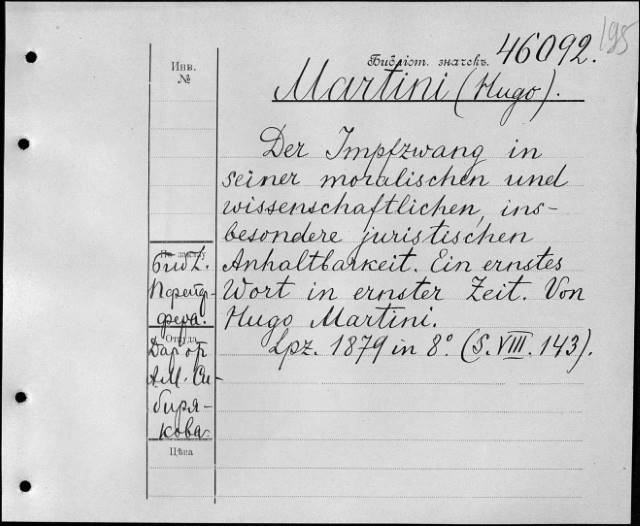 195
Библіот. значекъ. 46092.
Инв.
№
Martini (Hugo).
Der Impfzwang in
seiner moralischen und
wissenschaftlichen, ins-
besondere juristischen
Anhaltbarkeit. Ein ernstes
Wort in ernster Zeit. Von
Hugo Martini.
Lpz. 1879 in 8° (S. VIII. 143).
Библ.
Пфейф-
фера.
Откуда
Дар от
А.М. Си-
биря-
кова.
Цѣна